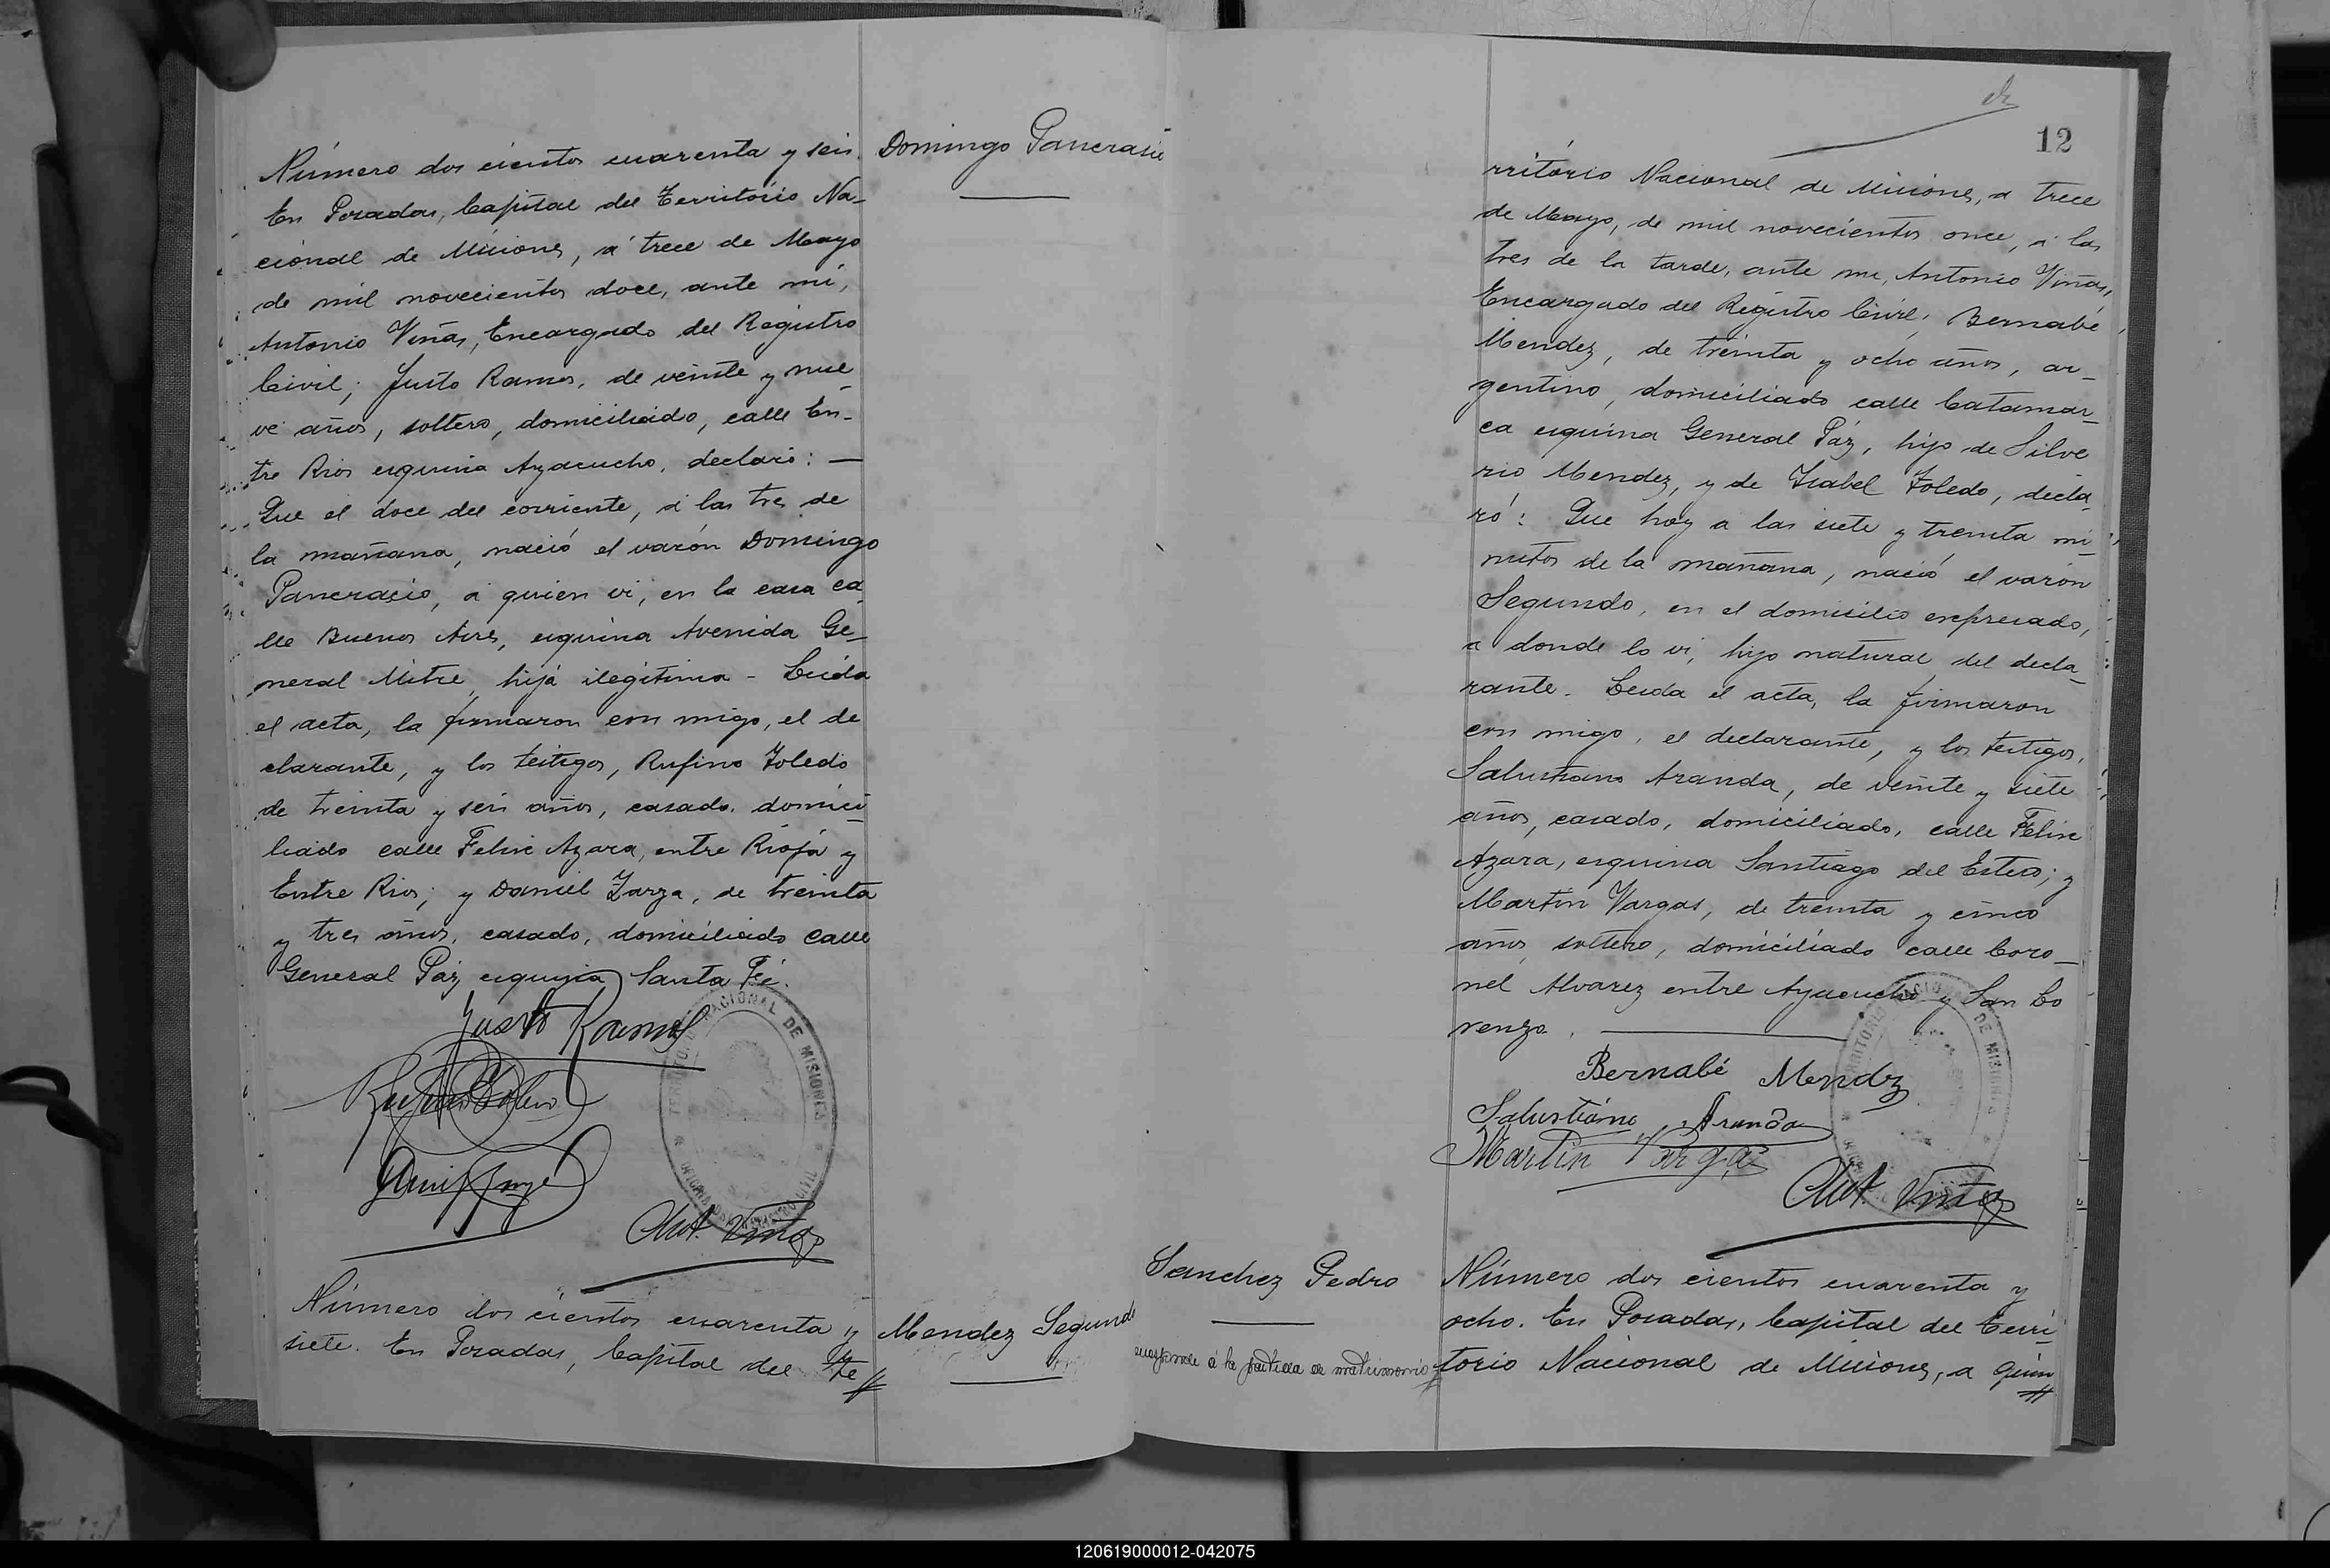 Número dos cientos cuarenta y seis.
En Posadas, Capital del Territorio Na-
cional de Misiones, á trece de Mayo
de mil novecientos doce, ante mí,
Antonio Viñas, Encargado del Registro
Civil; Justo Ramos, de veinte y nue
ve años, soltero, domiciliado, calle En-
tre Rios esquina Ayacucho, declaró: —
Que el doce del corriente, á las tres de
la mañana, nació el varón Domingo
Pancrasio, á quien vi, en la casa ca
lle Buenos Aires, esquina Avenida Ge-
neral Mitre, hija ilegítima - Leida
el acta, la firmaron con migo, el de
clarante, y los testigos, Rufino Toledo
de treinta y seis años, casado, domici-
liado calle Felix Azara, entre Rioja y
Entre Rios; y Daniel Zarza, de treinta
y tres años, casado, domiciliado calle
General Páz, esquina Santa Fé.
Justo Ramos
Ant. Viñas
TERRITORIO NACIONAL DE MISIONES
Número dos cientos cuarenta y
siete. En Posadas, Capital del Te
Domingo Pancrasio
Mendez Segundo
12
rritório Nacional de Misiones, a trece
de Mayo, de mil novecientos once, á las
tres de la tarde, ante mi, Antonio Viñas,
Encargado del Registro Civil, Bernabé
Mendez, de treinta y ocho años, ar-
gentino, domiciliado calle Catamar-
ca esquina General Páz, hijo de Silve
rio Mendez, y de Isabel Toledo, decla-
ró: Que hoy a las siete y treinta mi-
nutos de la mañana, nació el varón
Segundo, en el domicilio expresado,
a donde lo vi, hijo natural del decla-
rante. Leida el acta, la firmaron
con migo, el declarante, y los testigos,
Salustiano Aranda, de veinte y siete
años, casado, domiciliado, calle Felix
Azara, esquina Santiago del Estero; y
Martin Vargas, de treinta y cinco
años, soltero, domiciliado calle Coro-
nel Alvarez entre Ayacucho y San Lo
renzo. —
Bernabé Mendez
Salustiano Aranda
Martin Vargas
Ant. Viñas
Sanchez Pedro
á la partida de matrimonio
Número dos cientos cuarenta y
ocho. En Posadas, Capital del Terri-
torio Nacional de Misiones, a quin
120619000012-042075